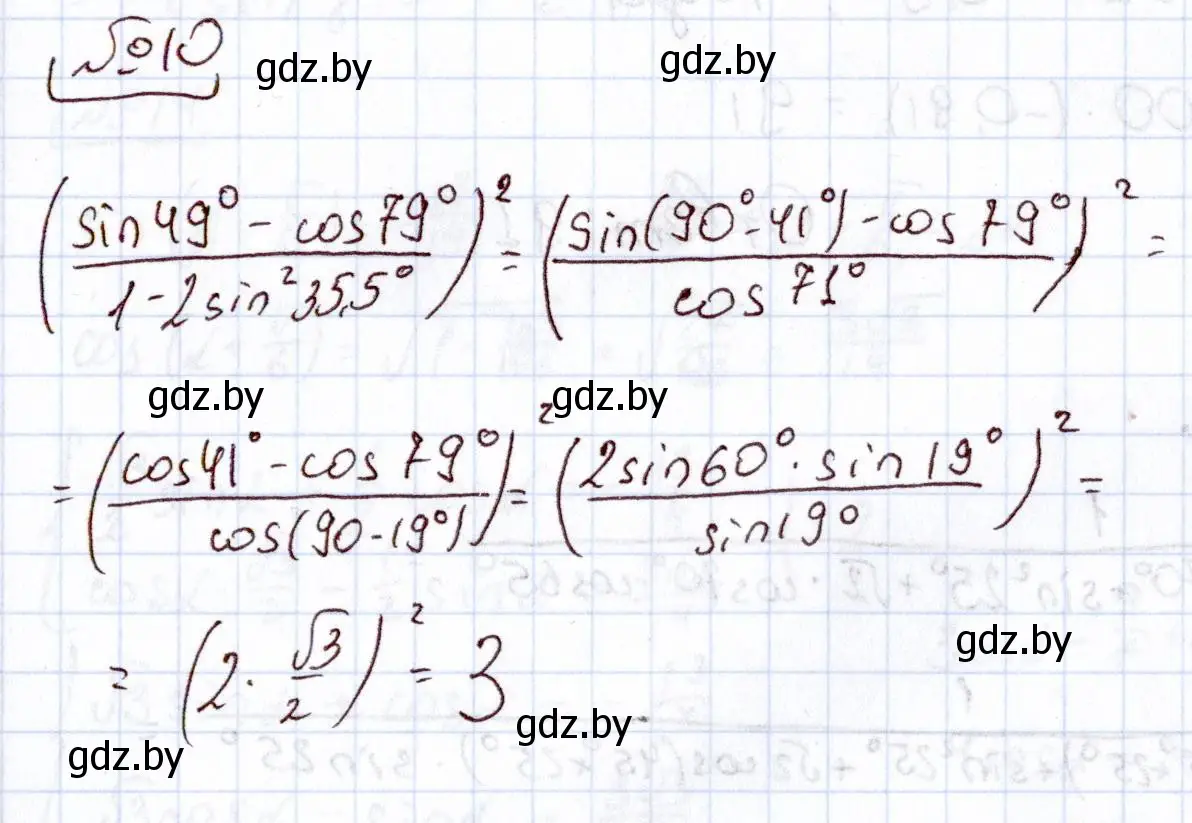 №10
gdz.by gdz.by
((sin 49° - cos 79°)/(1 - 2 sin² 35,5°))² = ((sin(90° - 41°) - cos 79°)/(cos 71°))² =
gdz.by gdz.by
= ((cos 41° - cos 79°)/(cos(90 - 19°)))² = ((2 sin 60° · sin 19°)/(sin 19°))² =
gdz.by
= (2 · √3/2)² = 3
gdz.by
gdz.by